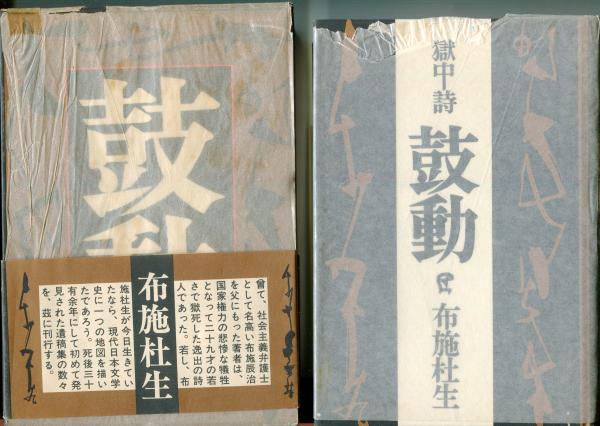 鼓動
布施杜生
曾て、社会主義弁護士
として名高い布施辰治
を父にもった著者は、
国家権力の悲惨な犠牲
となって二十九才の若
さで獄死した逸出の詩
人であった。若し、布
施杜生が今日生きてい
たなら、現代日本文学
史に一つの地図を描い
たであろう。死後三十
有余年にして初めて発
見された遺稿集の数々
を、茲に刊行する。
獄中詩
鼓動
布施杜生